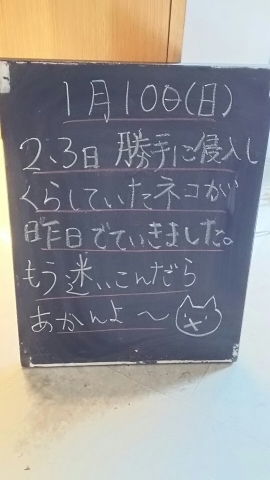 1月10日(日)
2、3日 勝手に侵入し
くらしていたネコが
昨日でていきました。
もう迷いこんだら
あかんよ〜